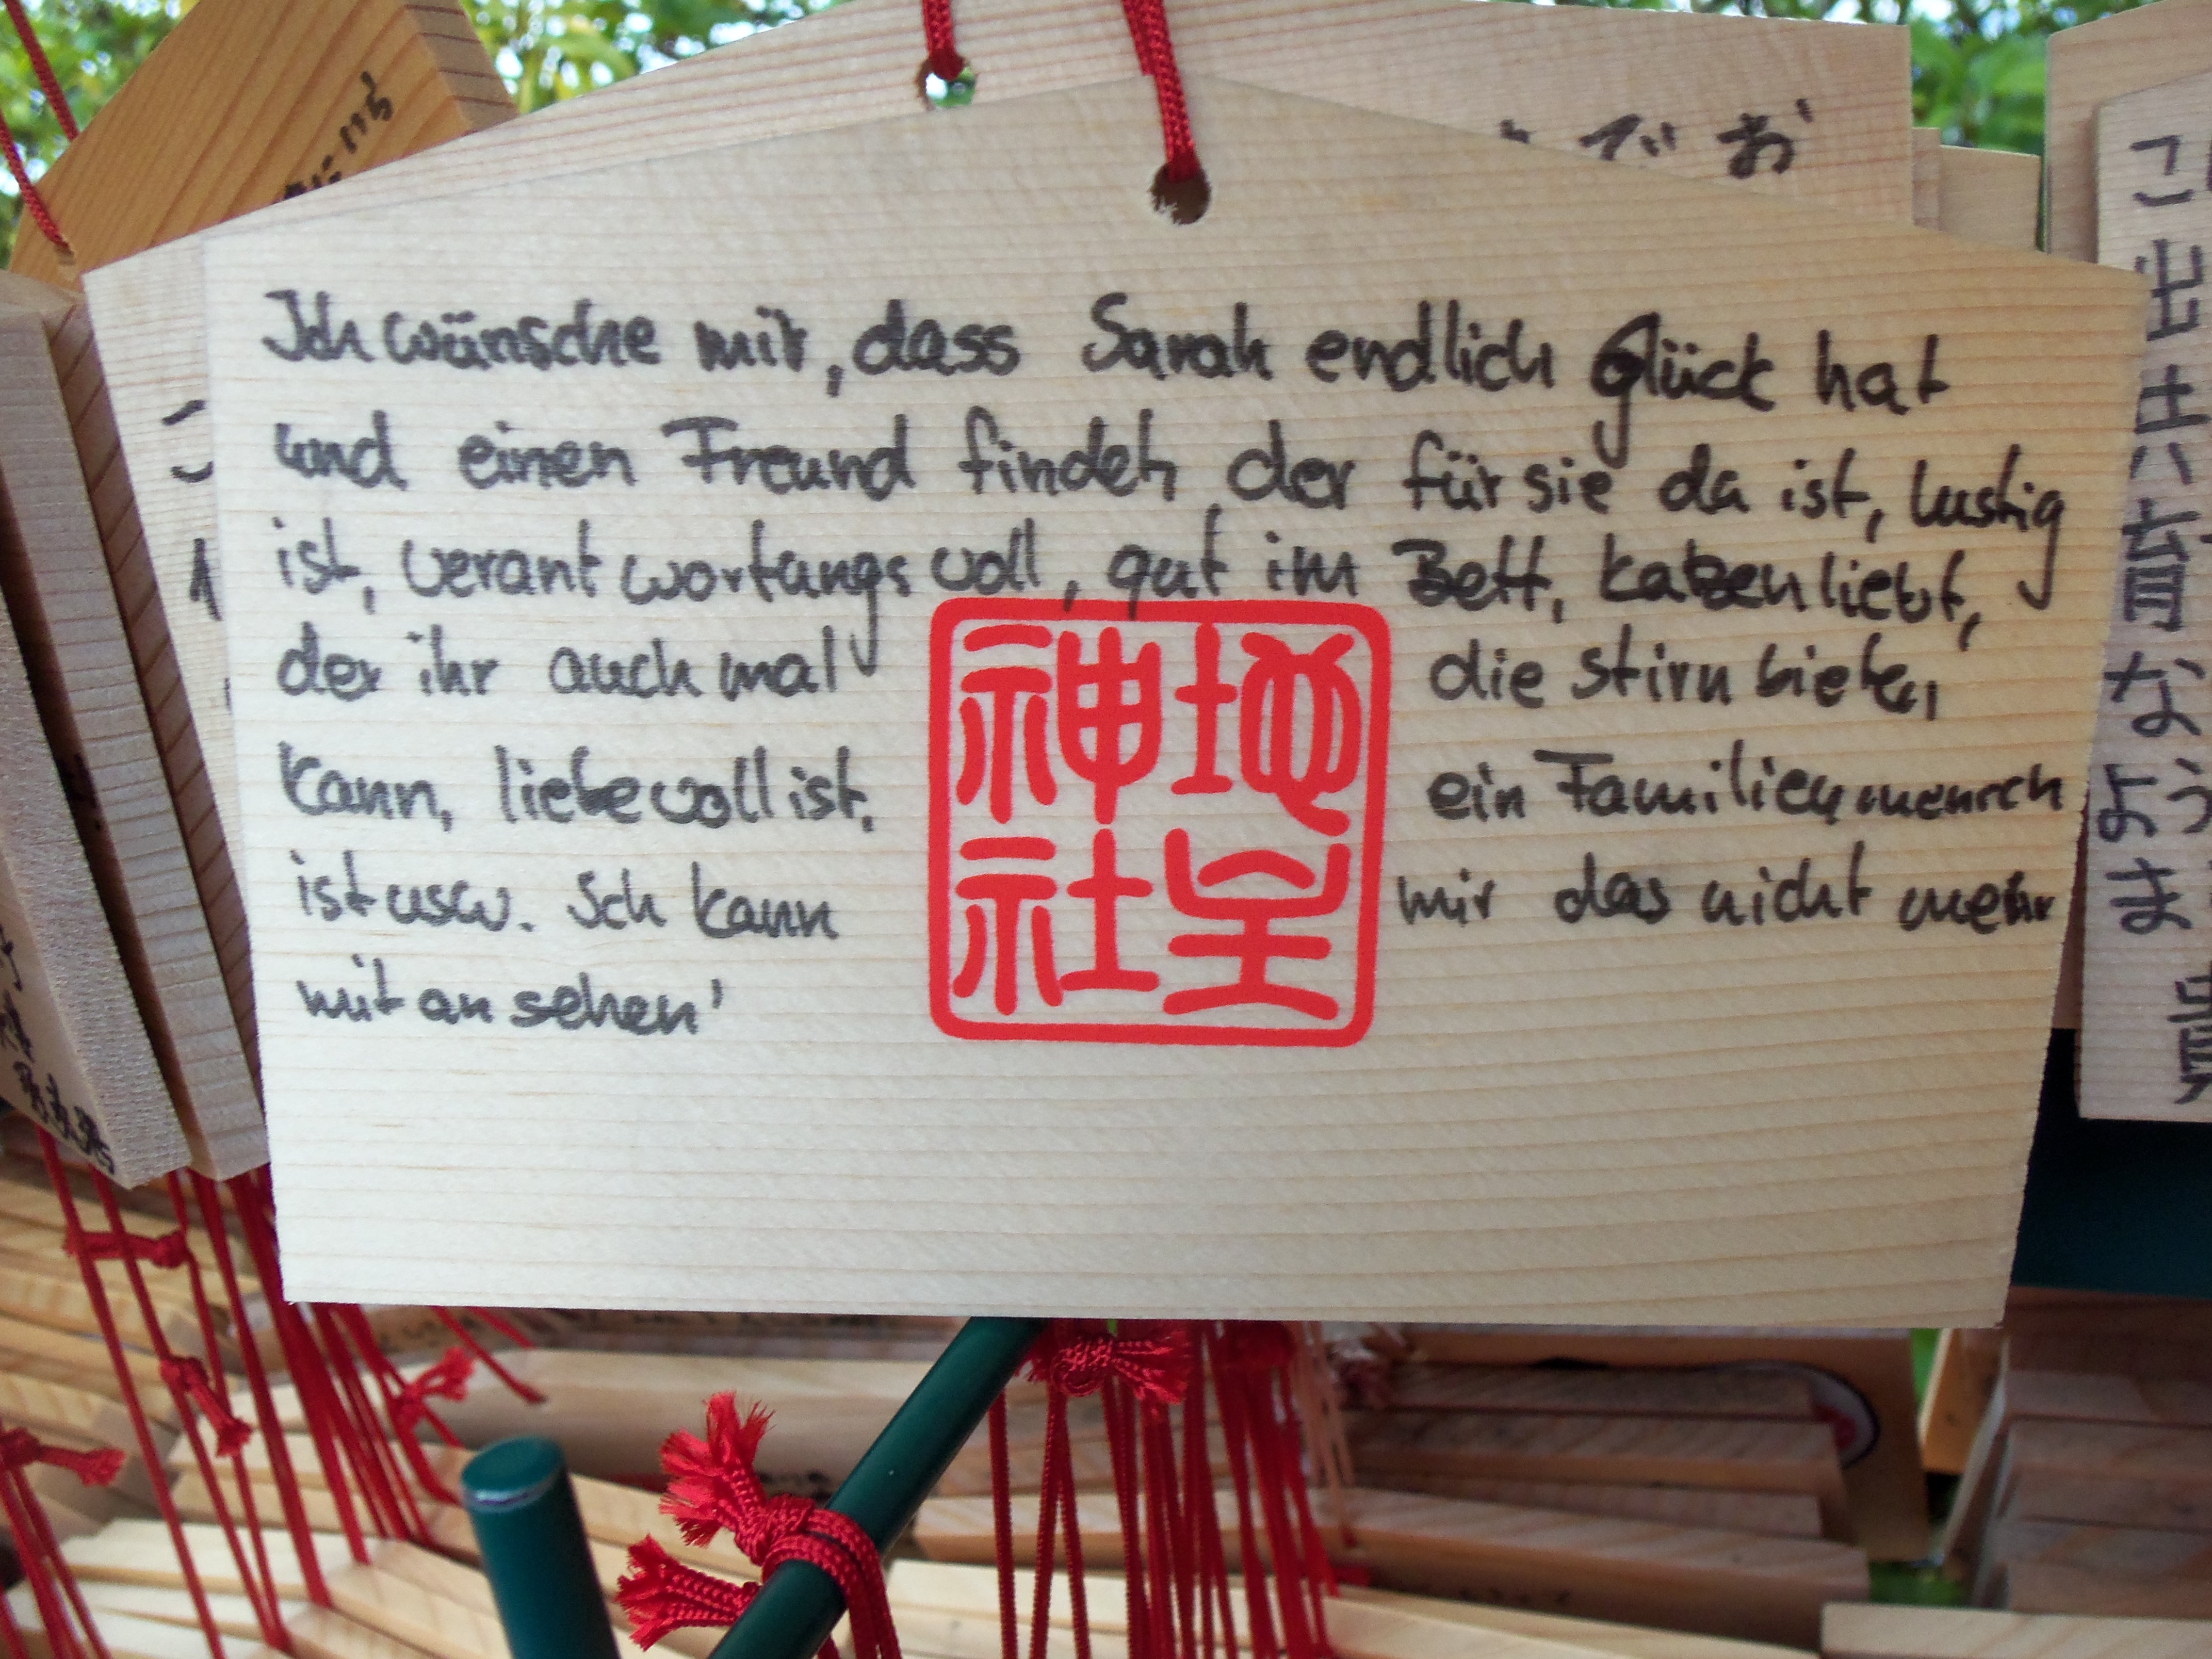 Ich wünsche mir, dass Sarah endlich Glück hat
und einen Freund findet der für sie da ist, lustig
ist, verantwortungsvoll, gut im Bett, Katzen liebt,
der ihr auch mal die Stirn bieten
kann, liebevoll ist, ein Familienmensch
ist usw. Ich kann mir das nicht mehr
mit an sehen!
地主
神社
でお
こ
出
共
育
な
よう
ま